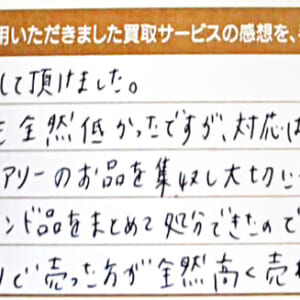 用いただきました買取サービスの感想を、
して頂けました。
全然低かったですが、対応は
アリーのお品を集収し大切に
ンド品をまとめて処分できたので
で売った方が全然高く売